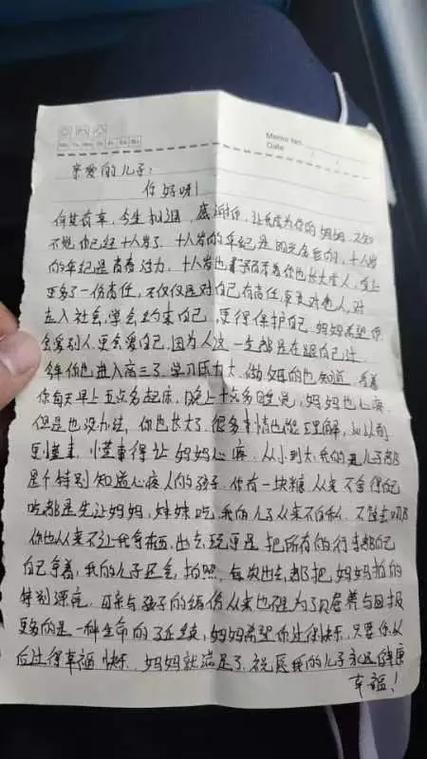 Memo No.
Date
亲爱的儿子:
你好呀!
何其有幸,今生相遇,感谢你,让我成为你的妈妈,不知
不觉你已经十八岁了,十八岁的年纪是闪光的,十八岁
的年纪是青春活力,十八岁也意味着你也长大成人,肩上
更多了一份责任,不仅仅是对自己有责任,更是对他人,对
走入社会,学会约束自己,更得保护自己,妈妈希望你
会爱别人,更会爱自己,因为人这一生都是在跟自己过
今年你也进入高三了,学习压力大,做妈的也知道,看着
你每天早上五点多起床,晚上十点多睡觉,妈妈也心疼
但是也没办法,你也长大了,很多事情也能理解,比以前
更懂事,懂事得让妈妈心疼,从小到大,我的儿子都
是个特别知道心疼人的孩子,你有一块糖,从来不舍得自己
吃都是先让妈妈,妹妹吃,我的儿子从来不自私,不管去哪
你也从来不让我拿东西,出去玩更是把所有的行李都自己
自己拿着,我的儿子还会拍照,每次出去,都把妈妈拍的
特别漂亮,母亲与孩子的缘份从来也不是为了反哺养与回报
更多的是一种生命的延续,妈妈希望你过得快乐,只要你以
后过得幸福快乐,妈妈就满足了,祝愿我的儿子永远健康
幸福!